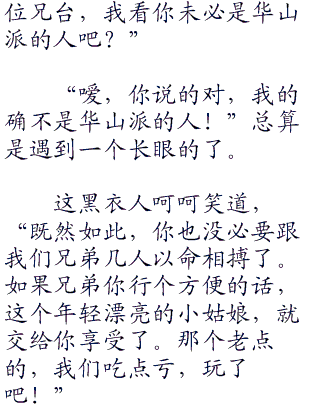 位兄台，我看你未必是华山
派的人吧？”
“嗳，你说的对，我的
确不是华山派的人！”总算
是遇到一个长眼的了。
这黑衣人呵呵笑道，
“既然如此，你也没必要跟
我们兄弟几人以命相搏了。
如果兄弟你行个方便的话，
这个年轻漂亮的小姑娘，就
交给你享受了。那个老点
的，我们吃点亏，玩了
吧！”